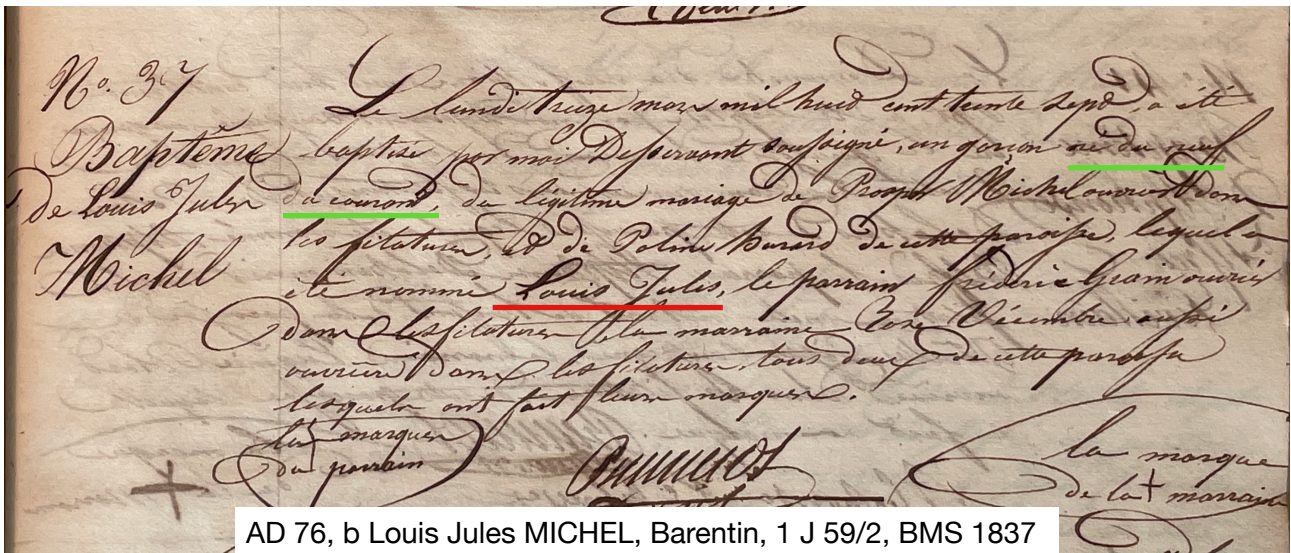 N.º 37
Baptême
de Louis Jules
Michel
Le lundi treize mars mil huit cent trente sept, a été
baptisé par moi Desservant soussigné, un garçon né du neuf
du courant, du légitime mariage de Prosper Michel ouvrier dans
les filatures, et de Poline hurard de cette paroisse, lequel a
été nommé Louis Jules, le parrain fréderic Grain ouvrier
dans les filatures la marraine Rose Vécembre aussi
ouvrière dans les filatures, tous deux de cette paroisse
lesquels ont fait leurs marques.
la marque
du parrain
la marque
de la marraine
AD 76, b Louis Jules MICHEL, Barentin, 1 J 59/2, BMS 1837